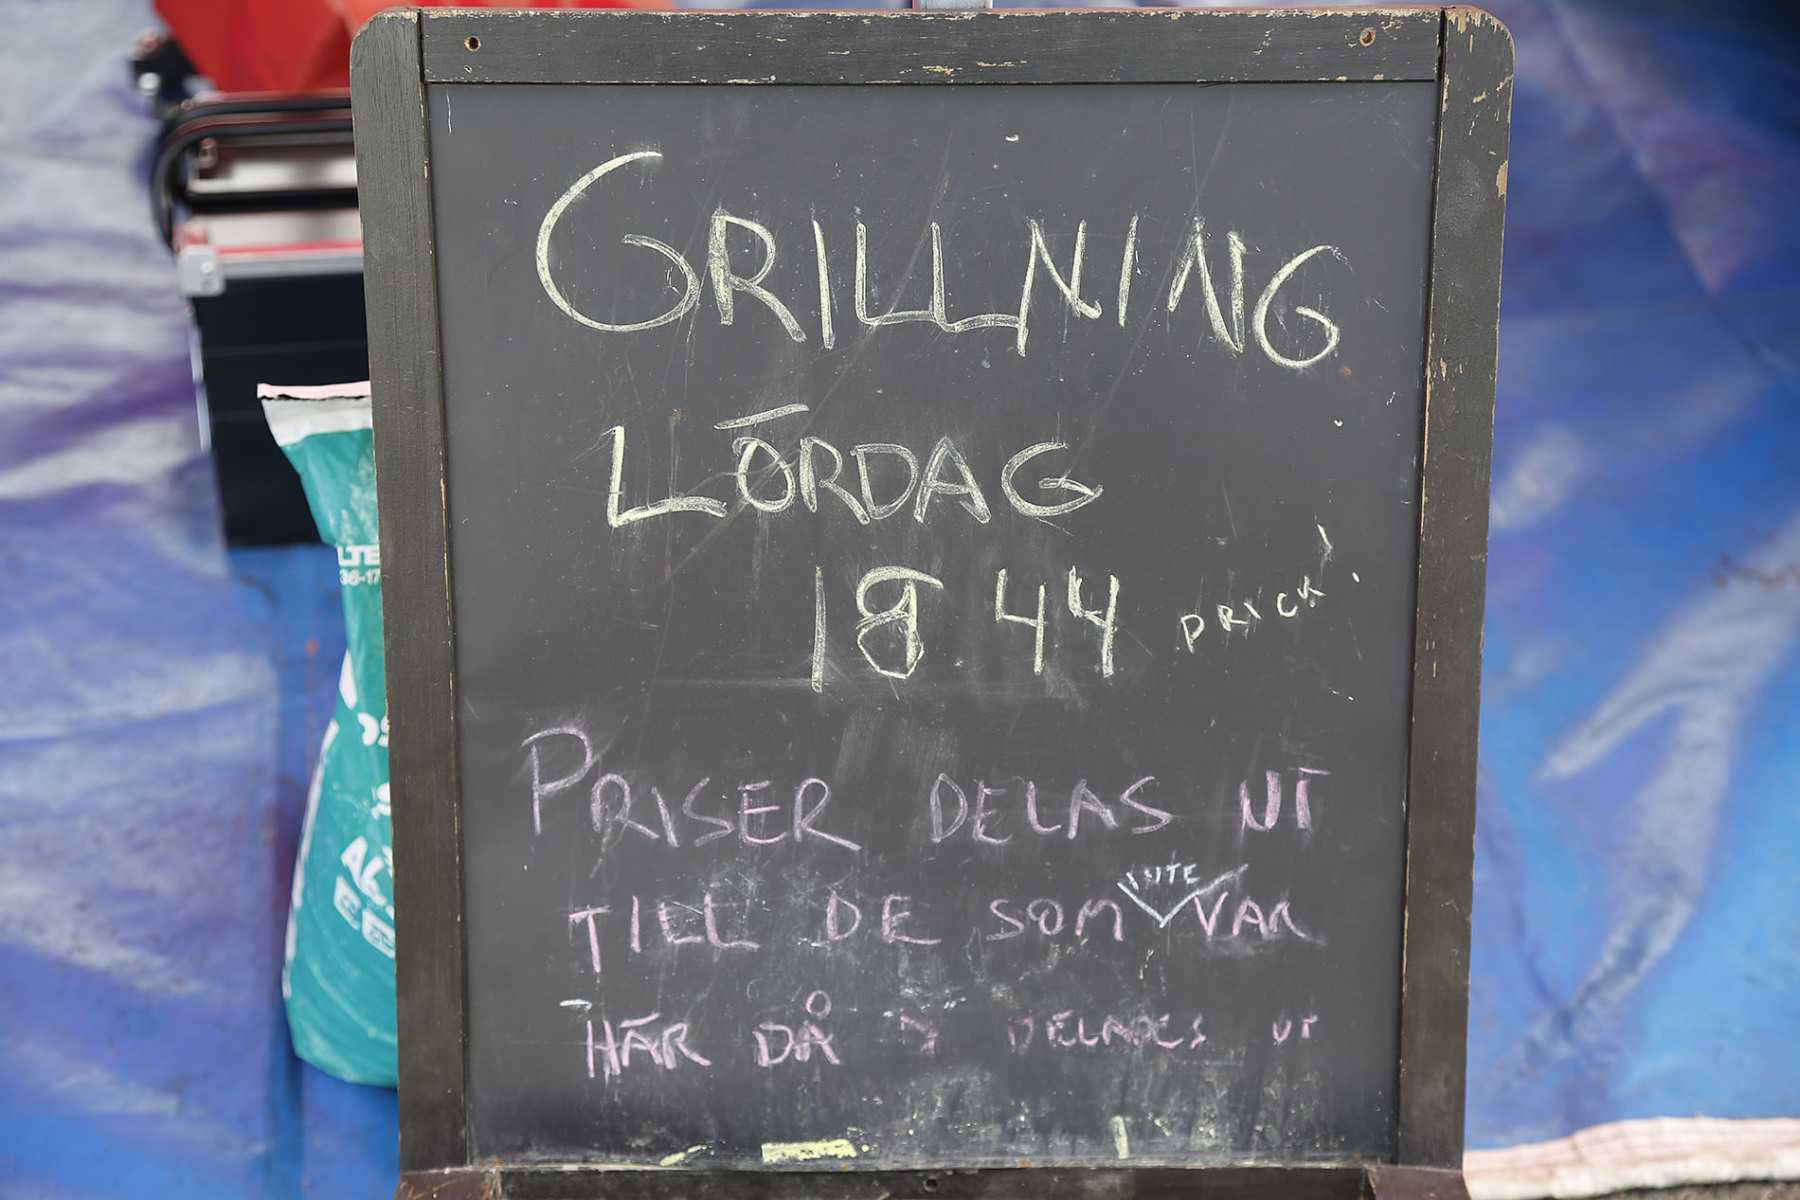 GRILLNING
LÖRDAG
18 44 PRICK!
PRISER DELAS UT
INTE
TILL DE SOM VAR
HÄR DÅ DELADES UT
LTE
36-17